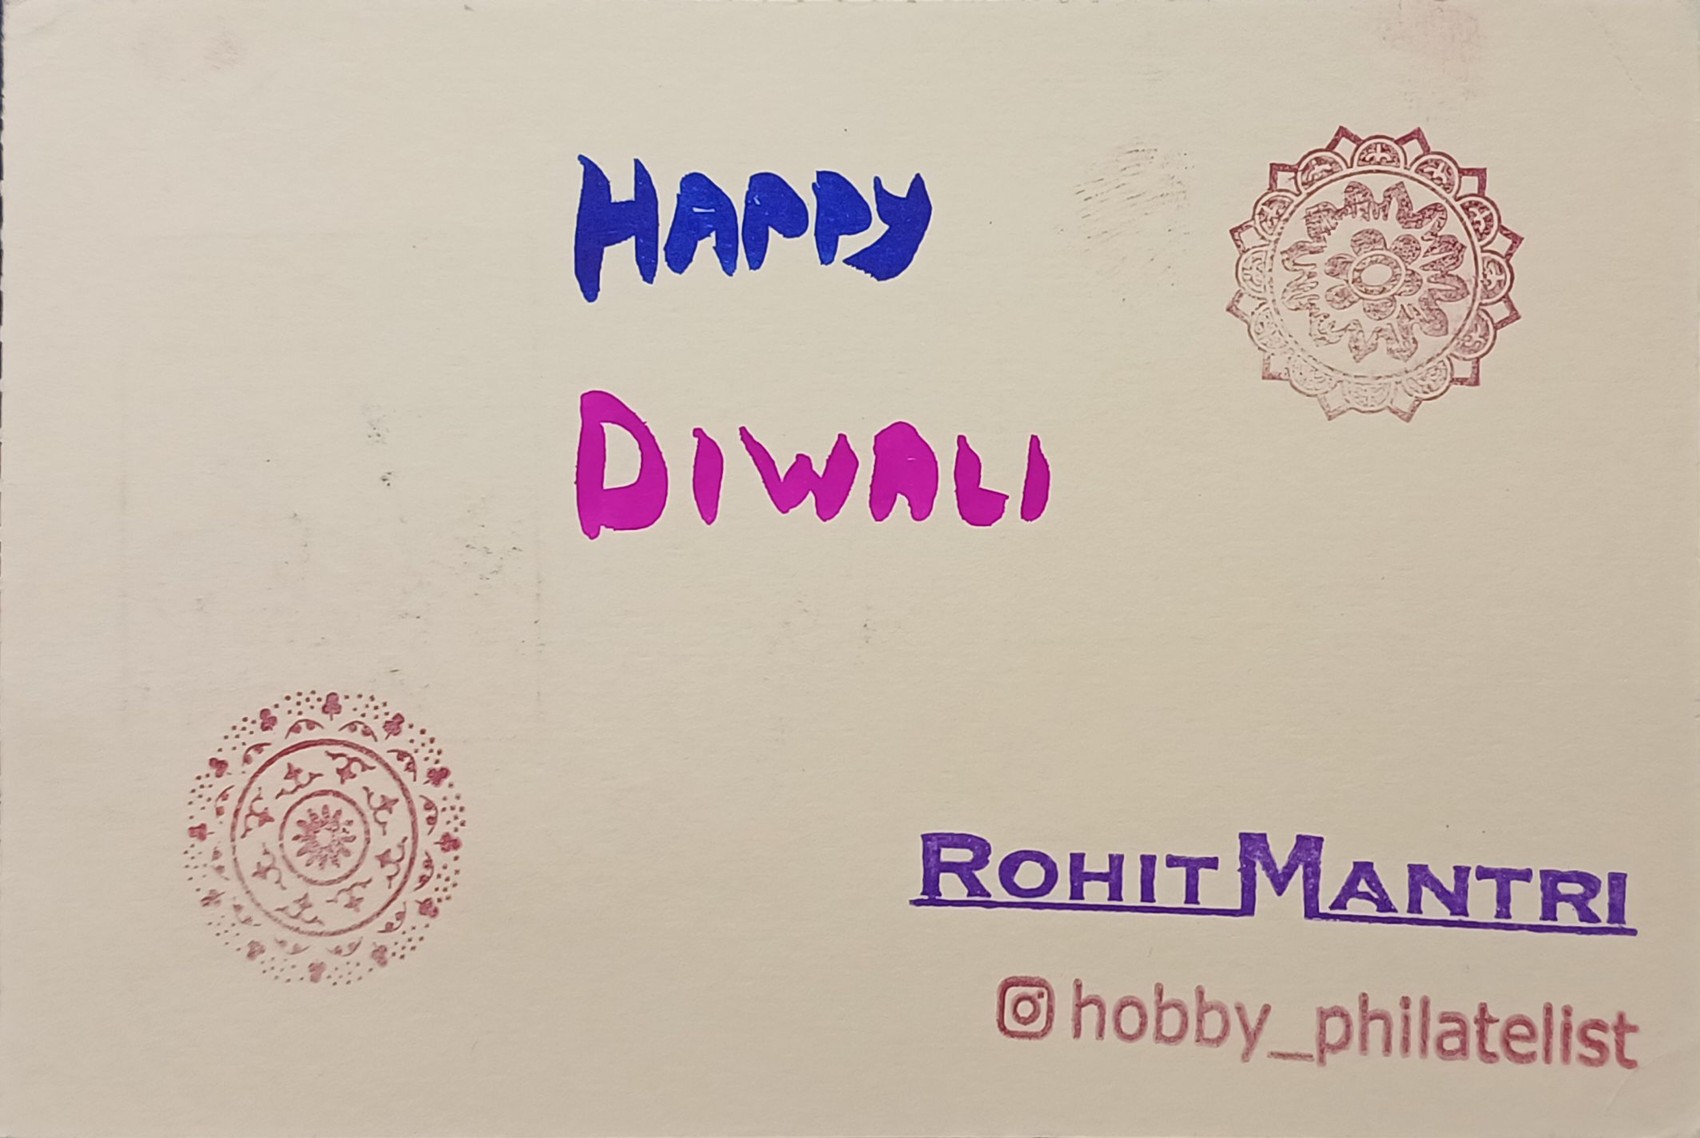 HAPPY
DIWALI
ROHIT MANTRI
hobby_philatelist